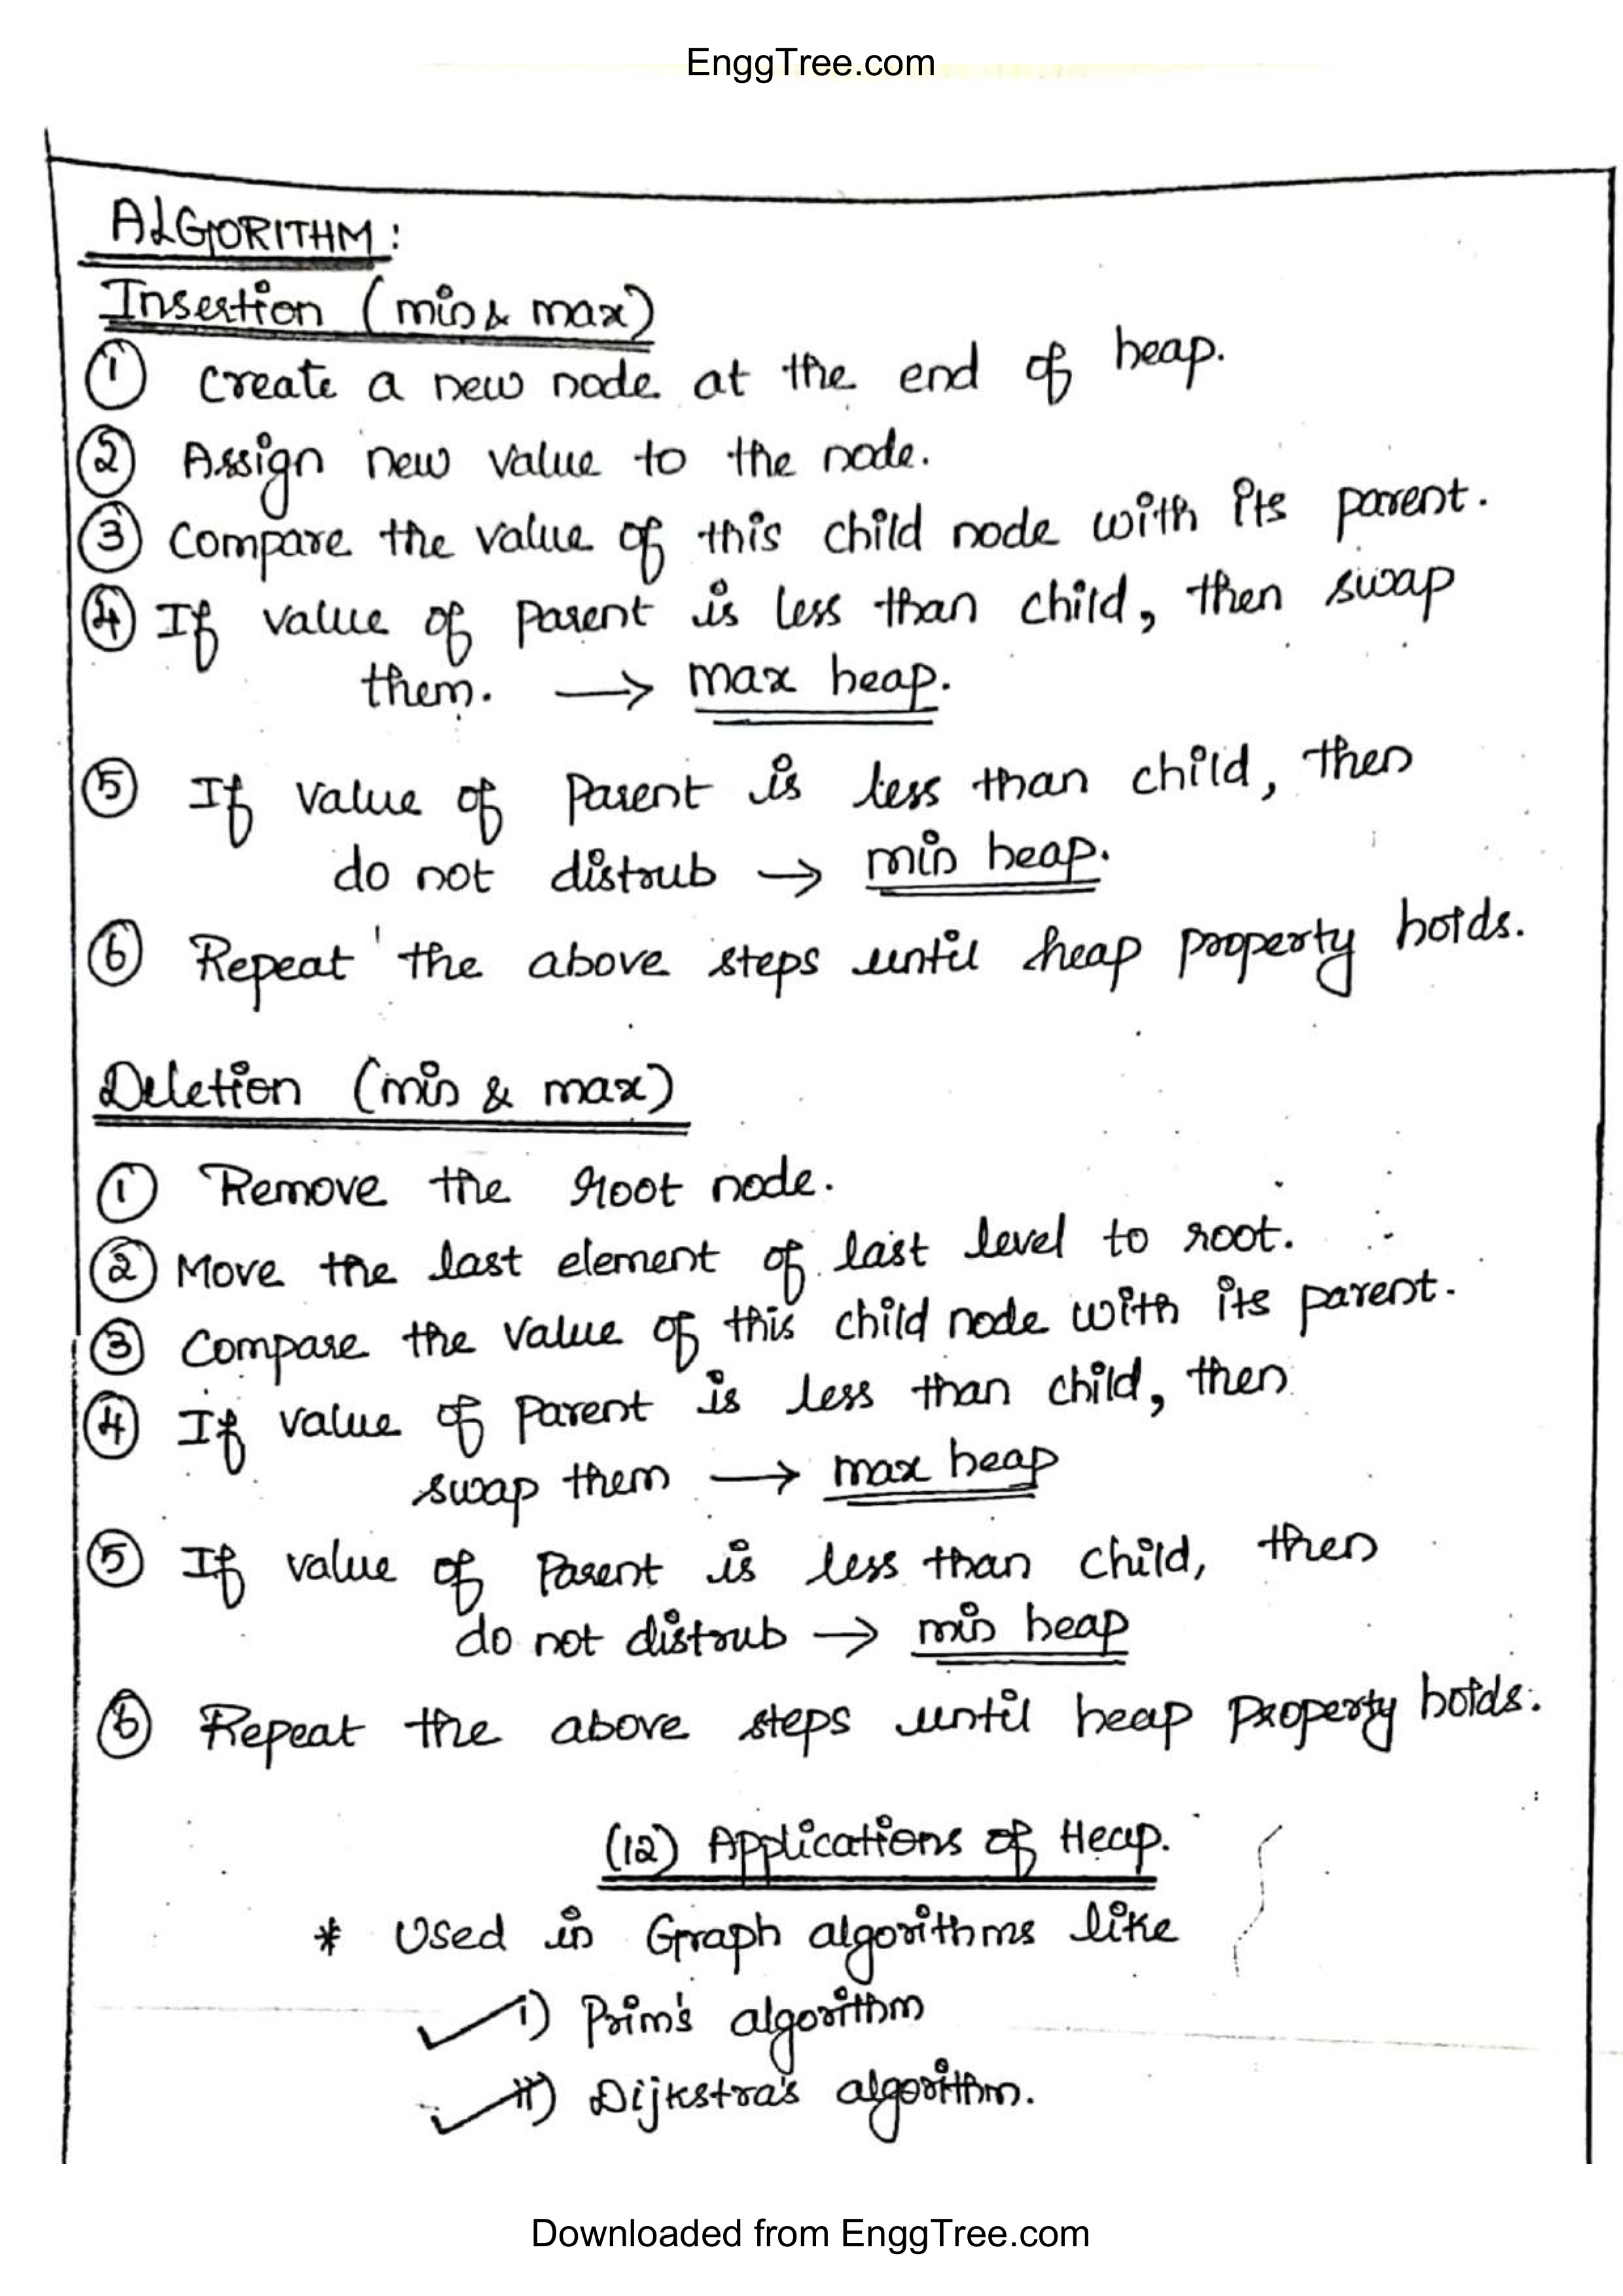 EnggTree.com
ALGORITHM:
Insertion (min & max)
① Create a new node at the end of heap.
② Assign new value to the node.
③ Compare the value of this child node with its parent.
④ If value of Parent is less than child, then swap
them. → max heap.
⑤ If value of Parent is less than child, then
do not distrub → min heap.
⑥ Repeat the above steps until heap property holds.
Deletion (min & max)
① Remove the root node.
② Move the last element of last level to root.
③ Compare the value of this child node with its parent.
④ If value of Parent is less than child, then
swap them → max heap
⑤ If value of Parent is less than child, then
do not distrub → min heap
⑥ Repeat the above steps until heap Property holds.
(12) Applications of Heap.
* Used in Graph algorithms like
i) Prim's algorithm
ii) Dijkstra's algorithm.
Downloaded from EnggTree.com